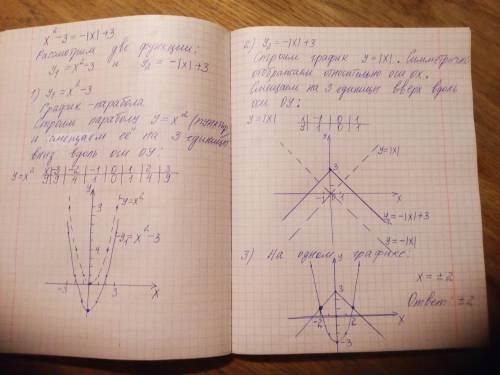 x² - 3 = -|x| + 3
Рассмотрим две функции:
y₁ = x² - 3 и y₂ = -|x| + 3
1) y₁ = x² - 3
График - парабола
Строим параболу y = x² (пунктир)
и смещаем её на 3 единицы
вниз вдоль оси ОУ:
y = x² x -3 -2 -1 0 1 2 3
y 9 4 1 0 1 4 9
y
9
y = x²
4
y₁ = x² - 3
-3 3 x
2) y₂ = -|x| + 3
Строим график y = |x|. Симметрично
отображаем относительно оси ох.
Смещаем на 3 единицы вверх вдоль
оси ОУ:
y = |x| x -1 0 1
y 1 0 1
y
3
y = |x|
-1 0 1 x
-1
y₂ = -|x| + 3
y = -|x|
3) На одном графике:
y
3
-2 2 x
-3
x = ± 2
Ответ: ± 2